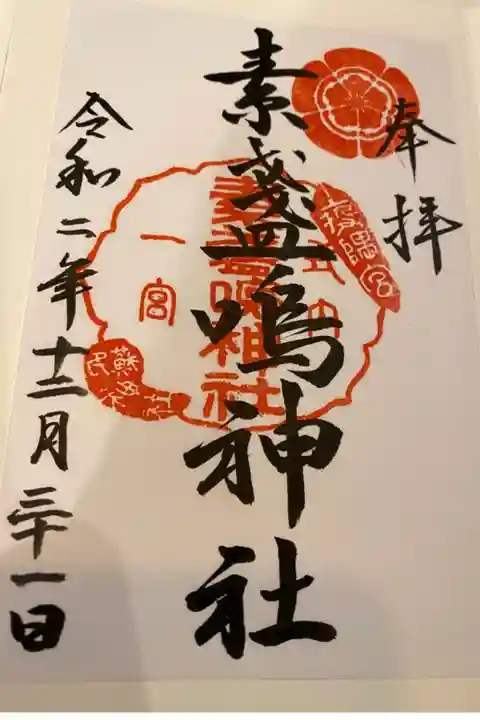 奉拝
素盞嗚神社
素盞嗚神社
一宮
疫隅宮
蘇民将来
令和二年十二月三十一日